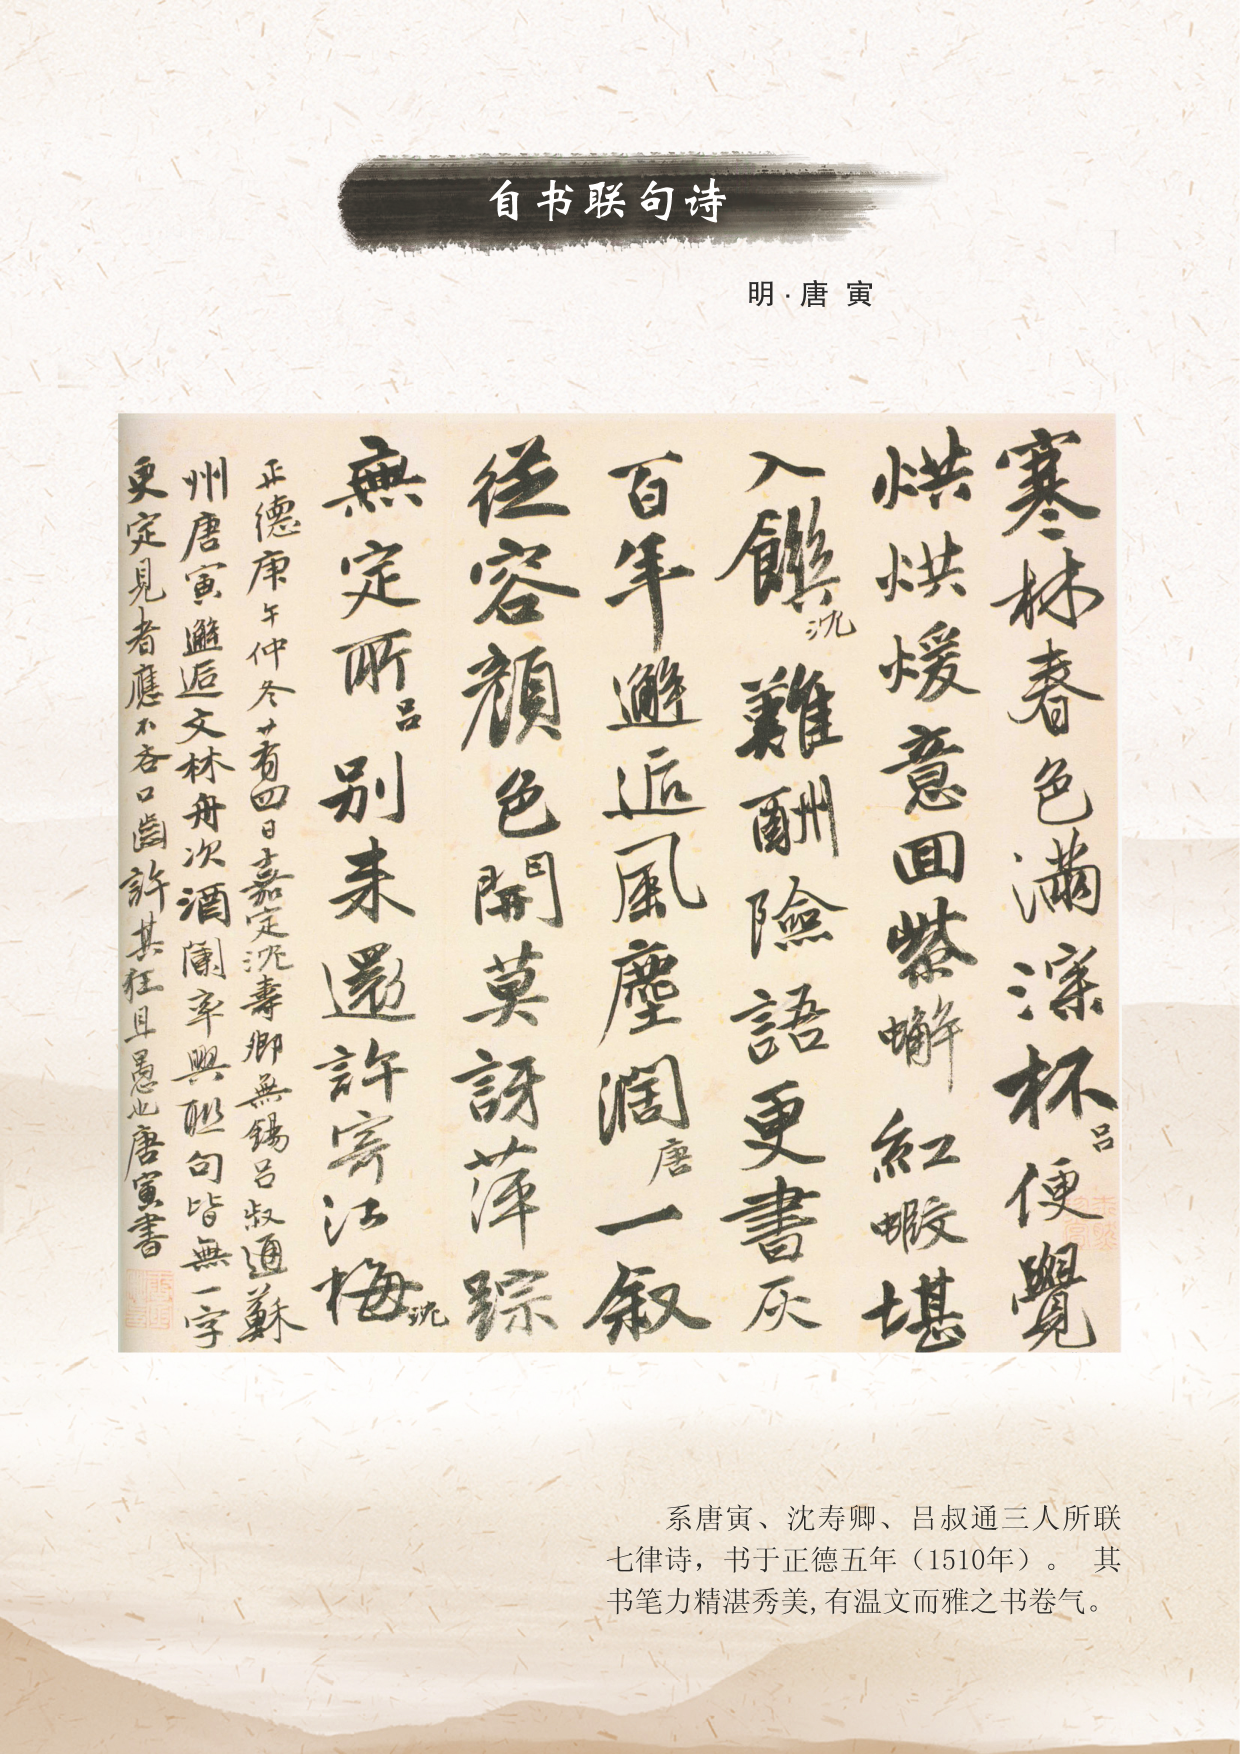 自书联句诗
明·唐 寅
寒林春色满深杯吕便覺
烘烘煖意回紫蠏紅蝦堪
入饌沈難酬險語更書灰
百年邂逅風塵濶唐一叙
從容顔色開莫訝萍踪
無定所吕别来還許寄江梅沈
正德庚午仲冬廿有四日嘉定沈壽卿無錫吕叔通蘇
州唐寅邂逅文林舟次酒闌率興聯句皆無一字
更定見者應不吝口齒許其狂且愚也唐寅書
系唐寅、沈寿卿、吕叔通三人所联
七律诗，书于正德五年（1510年）。 其
书笔力精湛秀美,有温文而雅之书卷气。